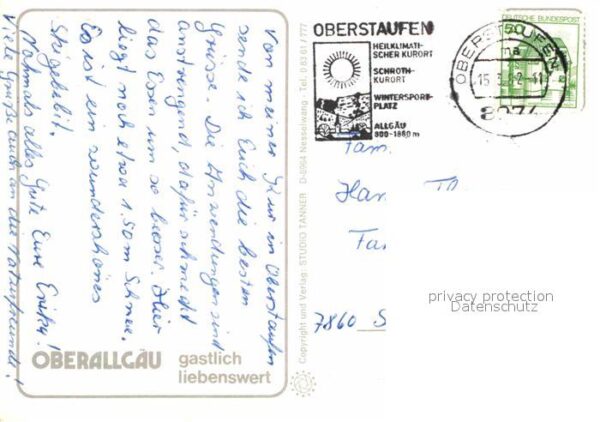 Von meiner Kur in Oberstaufen
sende ich Euch die besten
Grüsse. Die Anwendungen sind
anstrengend, dafür schmeckt
das Essen um so besser. Hier
liegt noch etwa 1.50m Schnee.
Es ist ein wunderschönes
Skigebiet.
Nochmals alles Gute Eure Erika!
Viele Grüße auch an die Naturfreunde!
OBERALLGÄU gastlich
liebenswert
Copyright und Verlag: STUDIO TANNER D-8964 Nesselwang · Tel. 0 83 61 / 777
OBERSTAUFEN
HEILKLIMATI-
SCHER KURORT
SCHROTH-
KURORT
WINTERSPORT-
PLATZ
ALLGÄU
800-1880 m
OBERSTAUFEN
15.3.82-11
8974
DEUTSCHE BUNDESPOST
50
Fam.
7860 S
privacy protection
Datenschutz